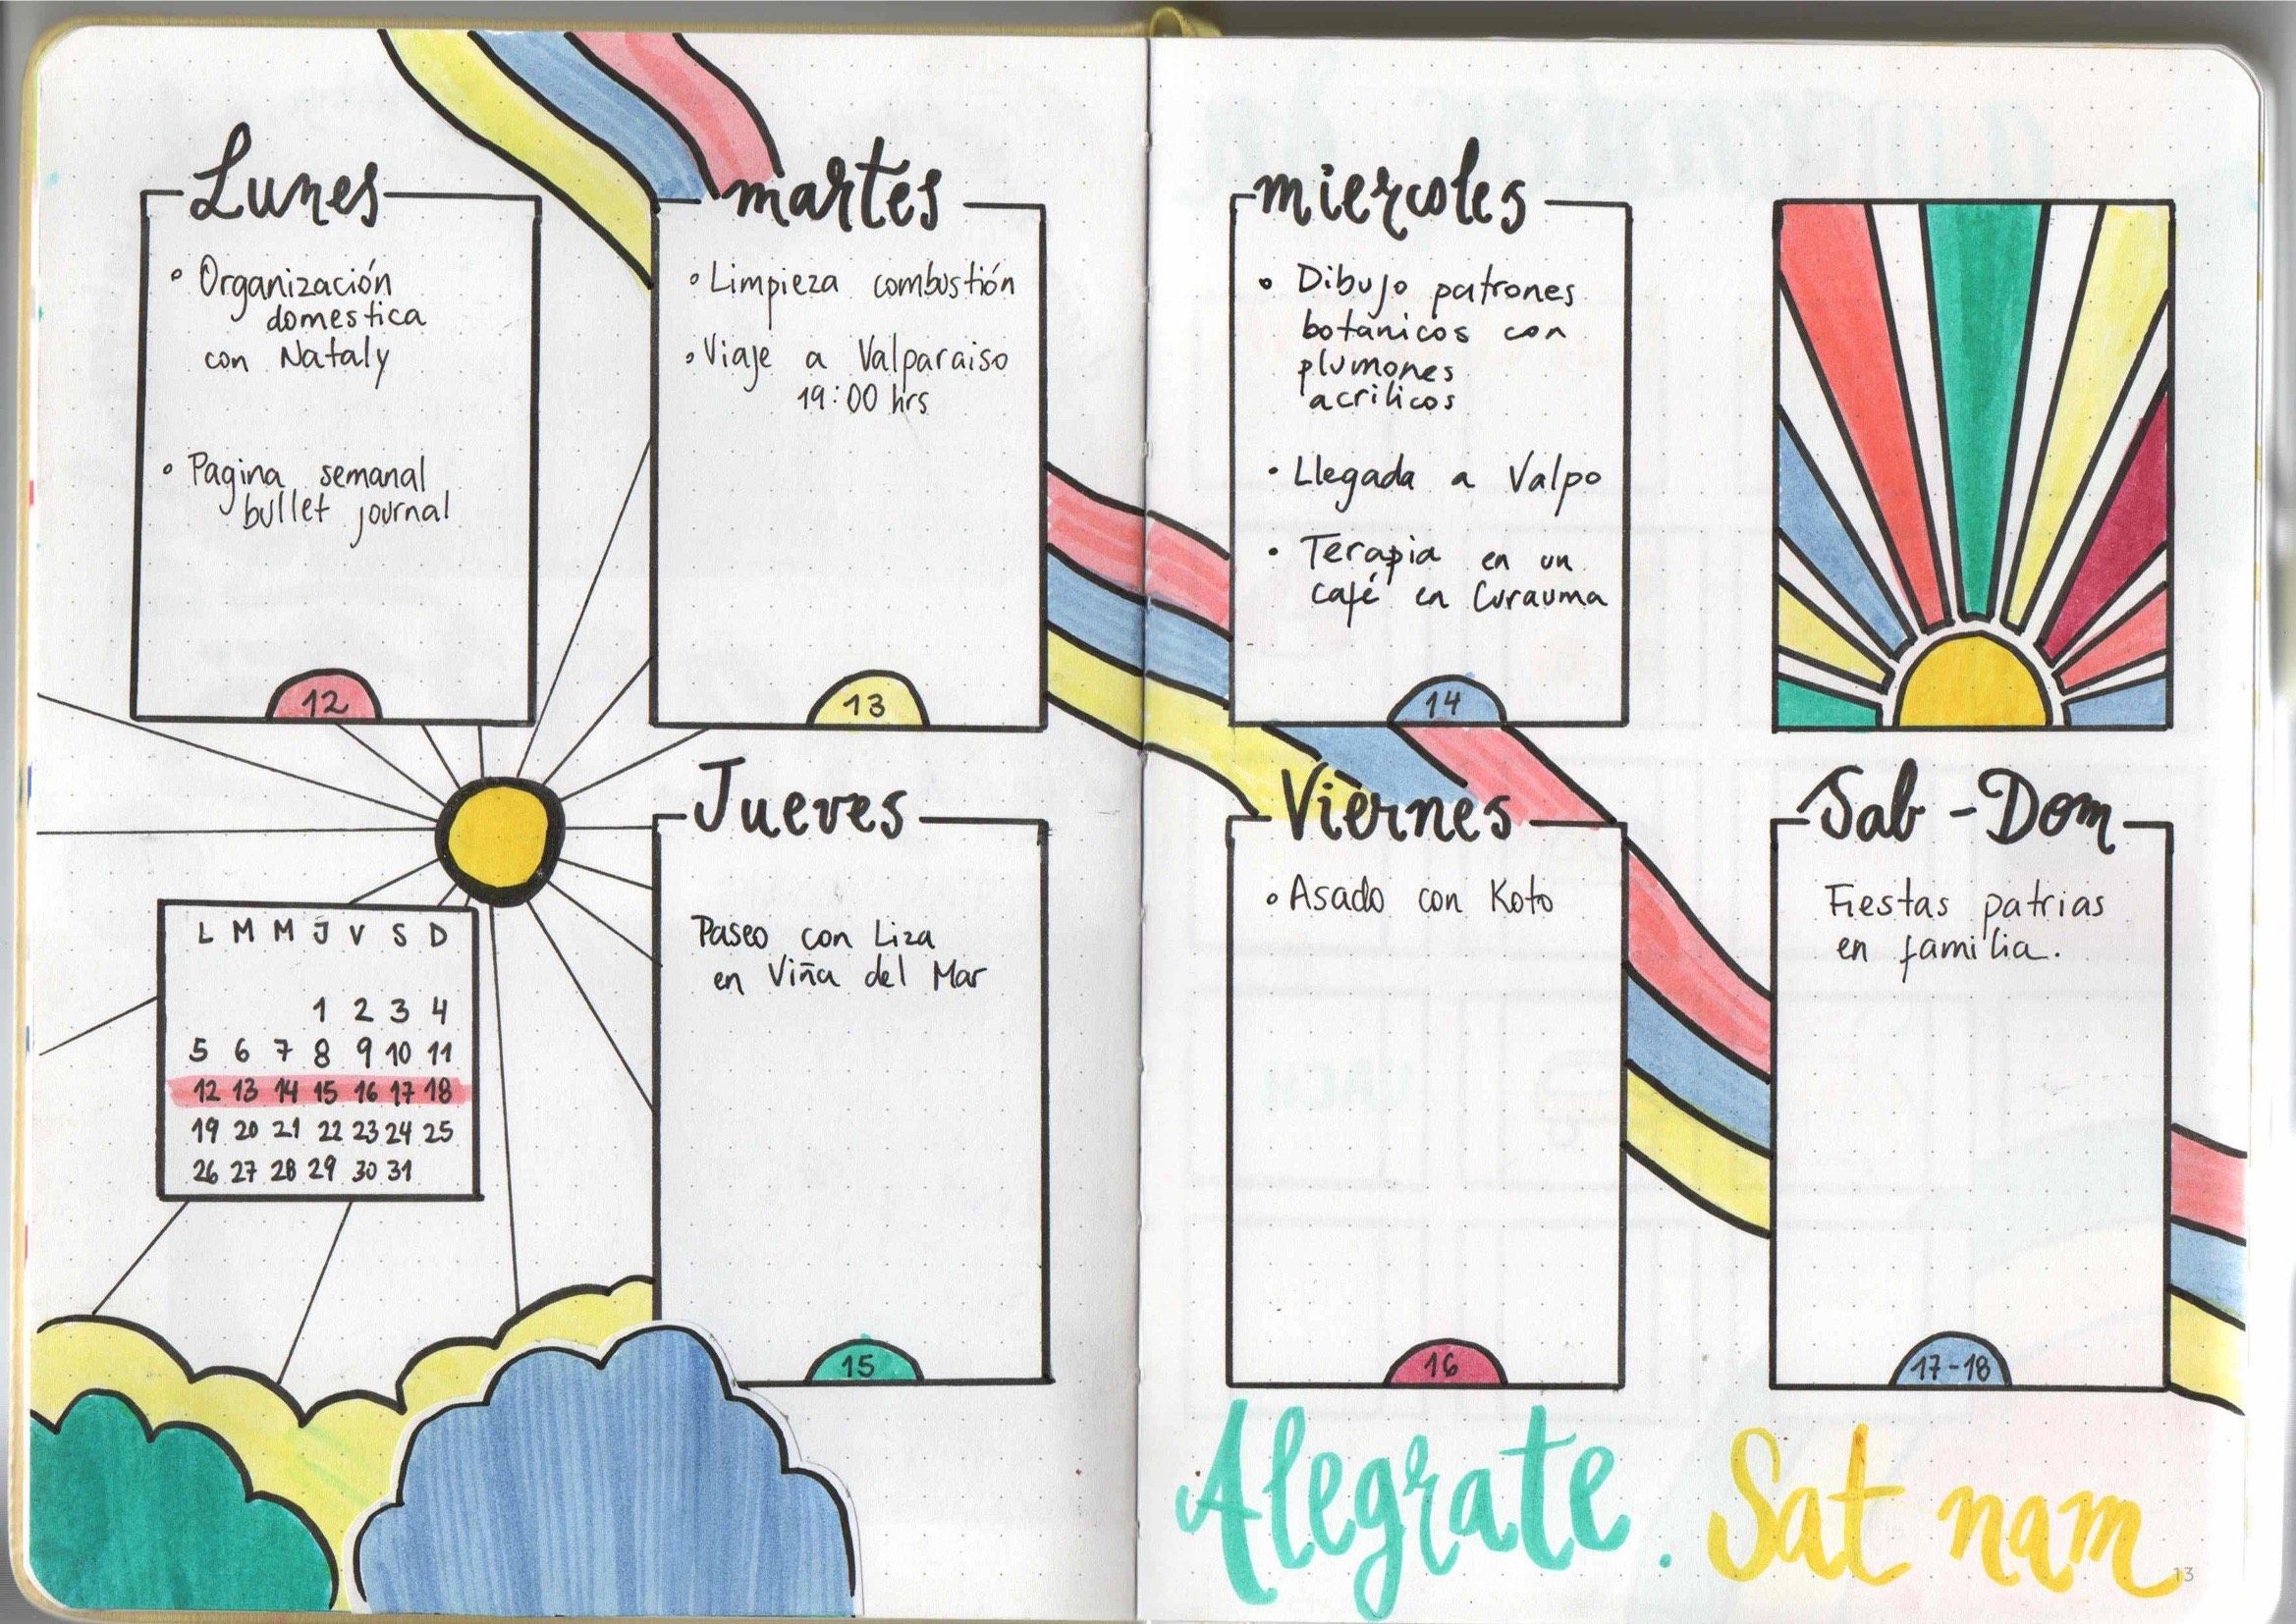 Lunes
° Organización
domestica
con Nataly
° Pagina semanal
bullet journal
12
martes
° Limpieza combustión
° Viaje a Valparaiso
19:00 hrs
13
miercoles
° Dibujo patrones
botanicos con
plumones
acrilicos
• Llegada a Valpo
• Terapia en un
café en Curauma
14
L M M J V S D
1 2 3 4
5 6 7 8 9 10 11
12 13 14 15 16 17 18
19 20 21 22 23 24 25
26 27 28 29 30 31
Jueves
Paseo con Liza
en Viña del Mar
15
Viernes
° Asado con Koto
16
Sab - Dom
Fiestas patrias
en familia.
17-18
Alegrate. Sat nam
13